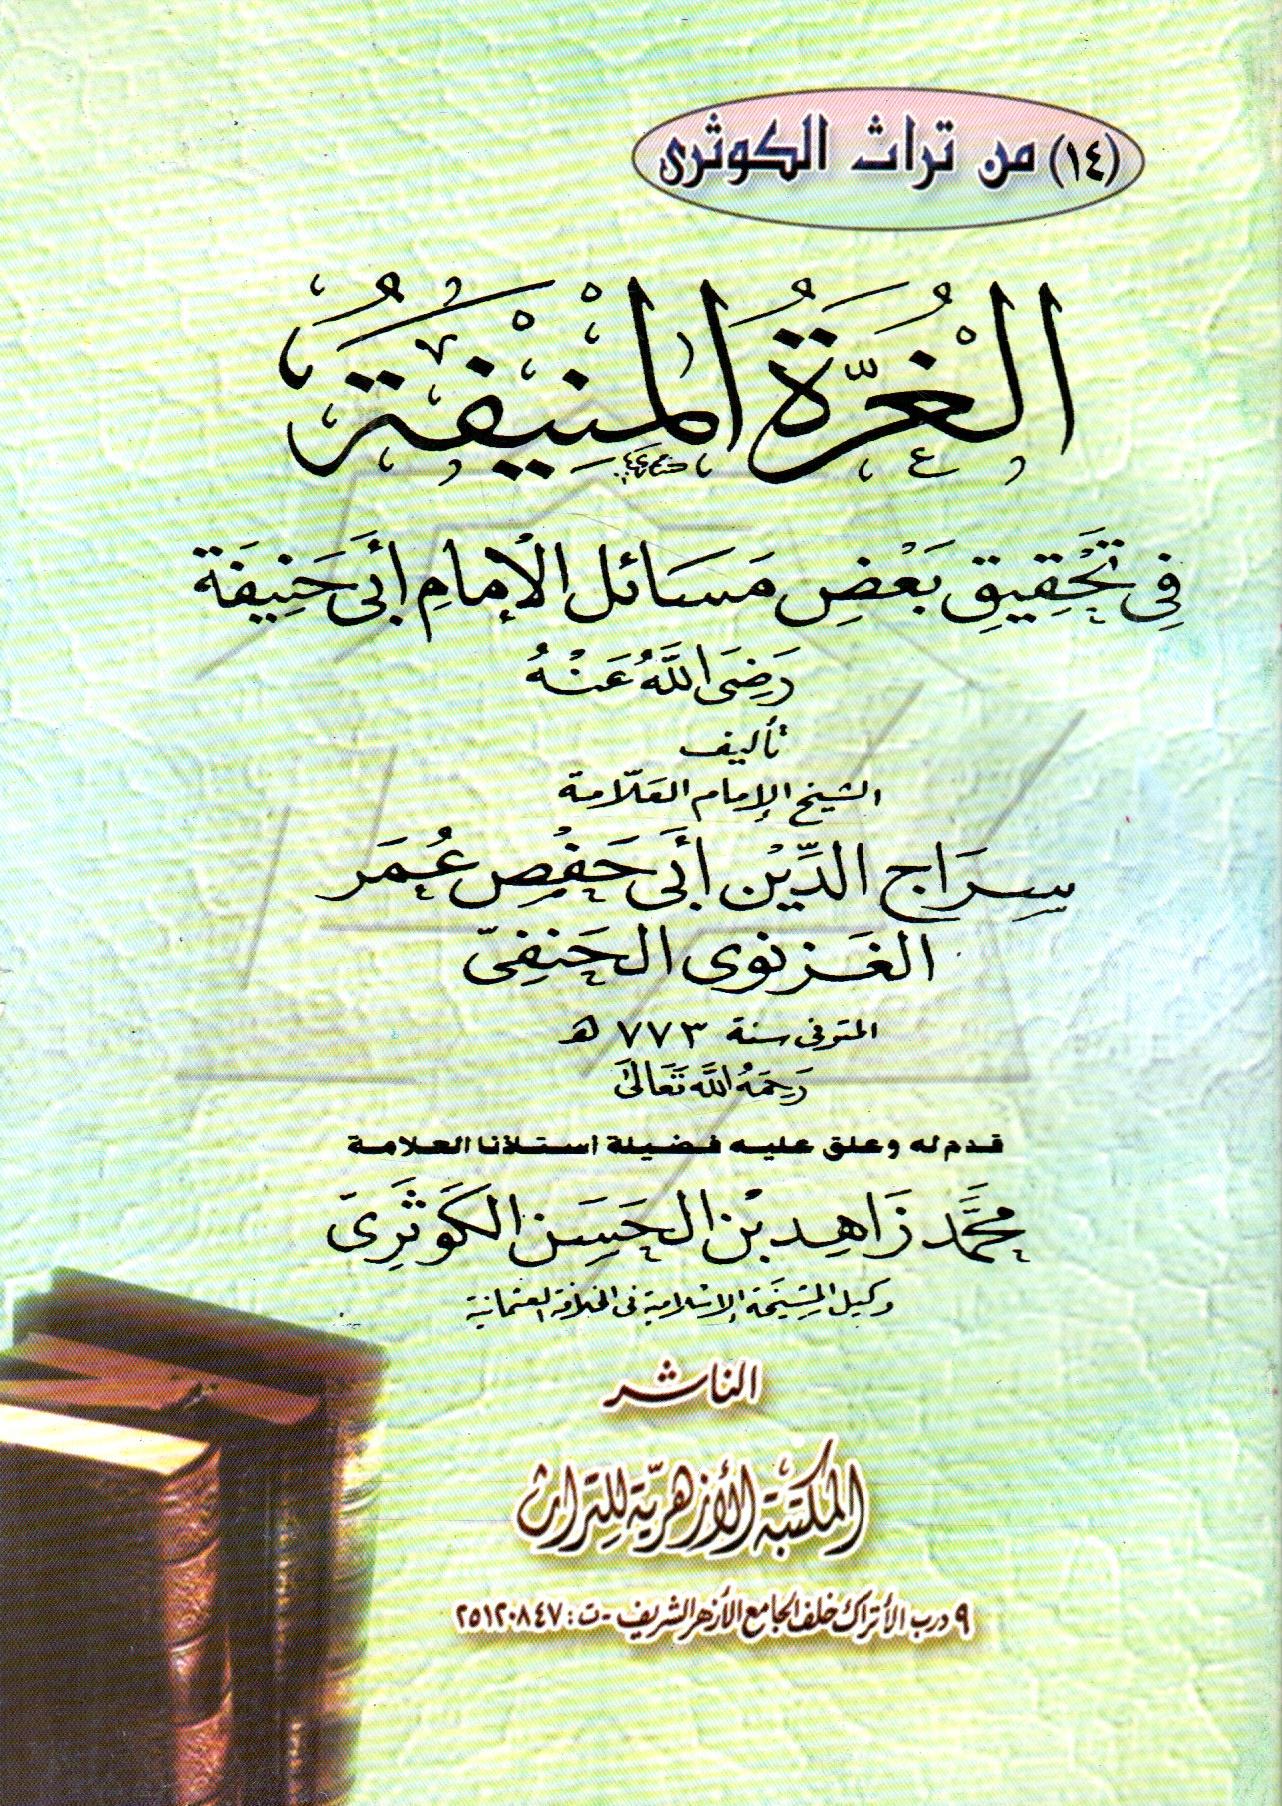 (١٤) من تراث الكوثرى
الْغُرَّةُ الْمُنِيْفَةُ
فِي تَحْقِيقِ بَعْضِ مَسَائل الْإمامِ أَبِى حَنِيفَة
رَضِىَ اللَّهُ عَنْهُ
تأليف
الشيخ الإمام العَلّامة
سِرَاج الدِّيْن أَبِى حَفْصٍ عُمَر
الغَزنوى الحَنفِىّ
المتوفى سنة ٧٧٣ هـ
رَحِمَهُ اللَّه تَعَالىَ
قدم له وعلق عليه فضيلة استاذنا العلامة
محمَّد زَاهِد بْن الحَسَن الكَوثَرِىّ
وكيل المشيخة الإسلامية فى الخلافة العثمانية
الناشر
المكتبة الأزهريّة للتراث
٩ درب الأتراك خلف الجامع الأزهر الشريف - ت: ٢٥١٢٠٨٤٧